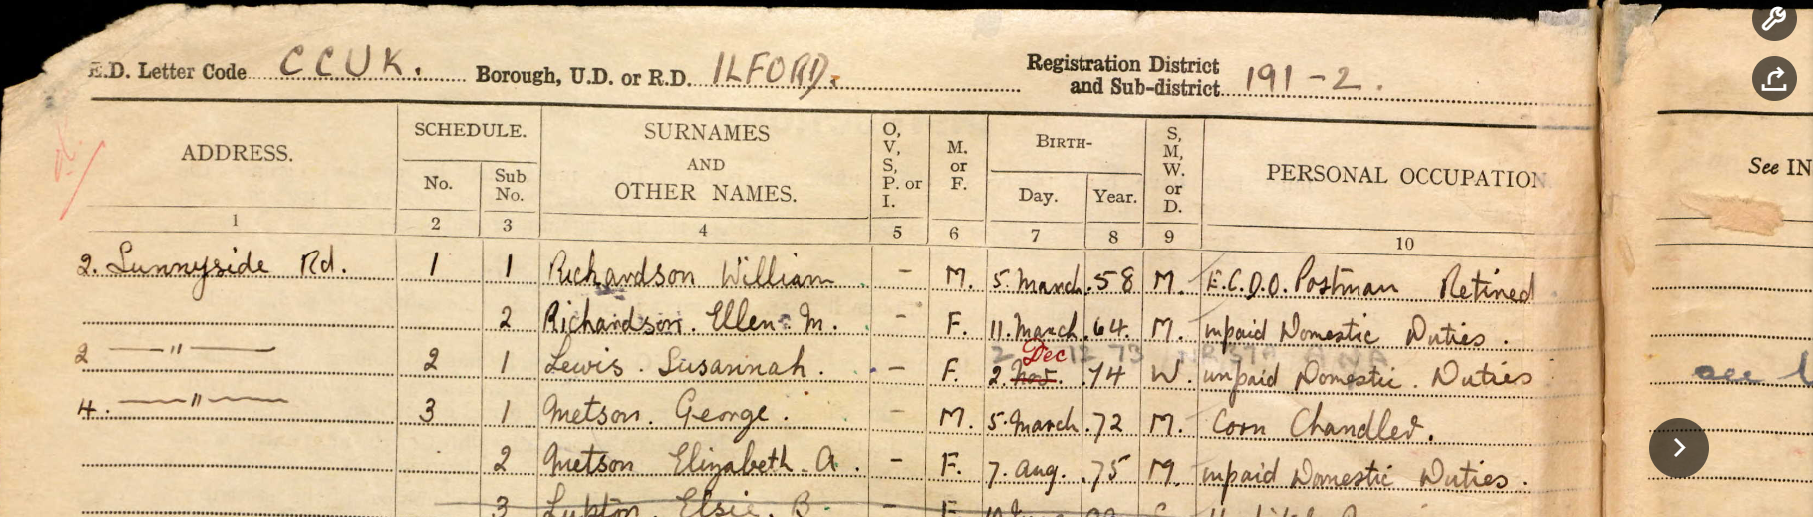 E.D. Letter Code CCUK. Borough, U.D. or R.D. ILFORD. Registration District and Sub-district 191-2.
ADDRESS. SCHEDULE. No. Sub No. SURNAMES AND OTHER NAMES. O, V, S, P. or I. M. or F. BIRTH- Day. Year. S, M, W. or D. PERSONAL OCCUPATION
See IN
1 2 3 4 5 6 7 8 9 10
2. Sunnyside Rd. 1 1 Richardson William – M. 5. March. 58 M. E.C.D.O. Postman Retired
2 Richardson. Ellen. M. – F. 11. March. 64. M. unpaid Domestic Duties.
2 Dec 12 73
2 —"— 2 1 Lewis. Susannah. – F. 2. Nov. 74 W. unpaid Domestic. Duties see
4. —"— 3 1 Metson. George. – M. 5. March. 72 M. Corn Chandler.
2 Metson Elizabeth. A. – F. 7. Aug. 75 M. unpaid Domestic Duties.
3 Lupton. Elsie. B. – F